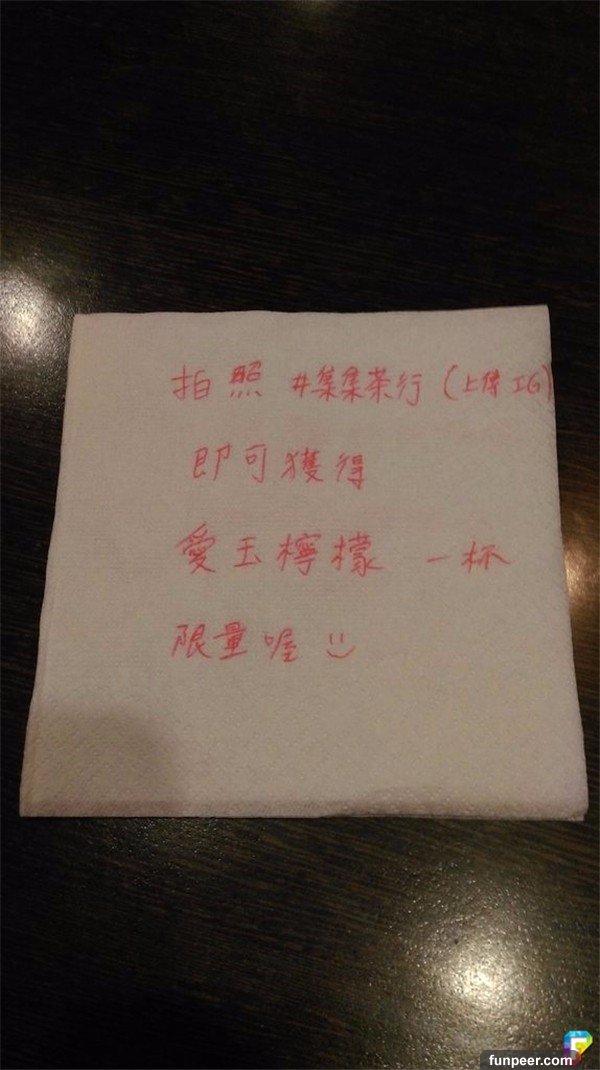 拍照 #集集茶行(上傳IG)
即可獲得
愛玉檸檬 一杯
限量喔 :)
funpeer.com